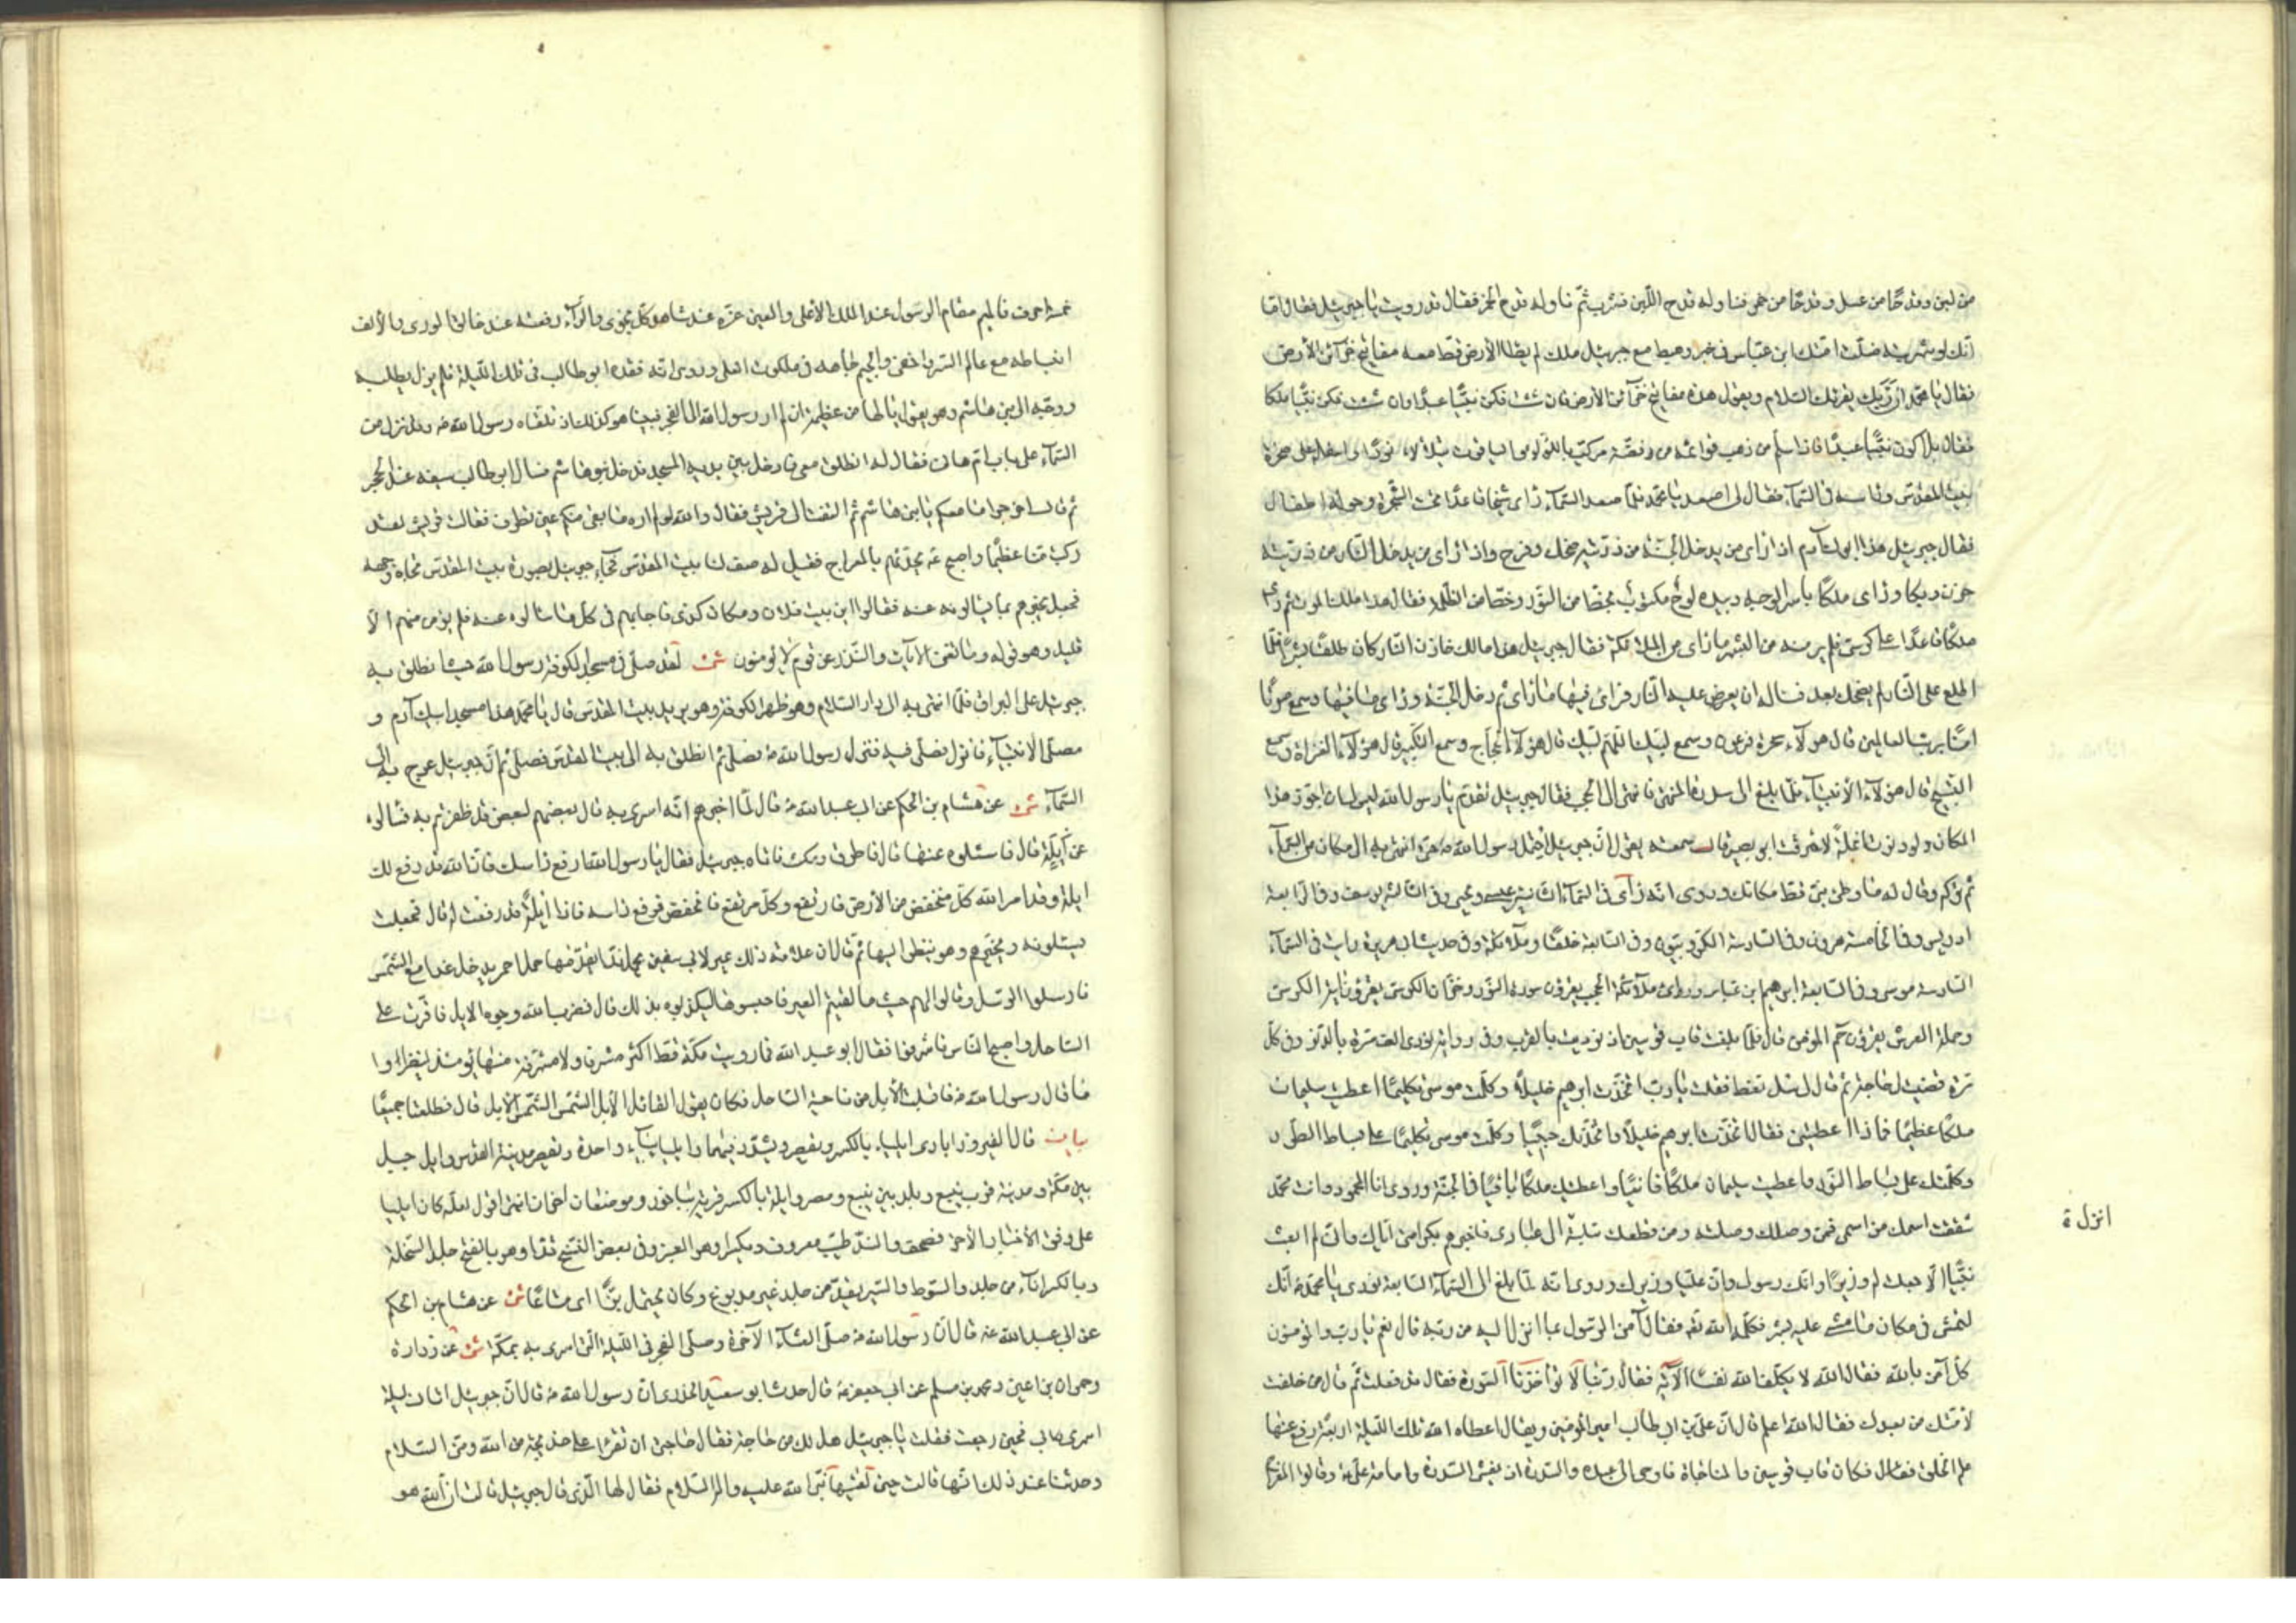 من لبن وقدحًا من عسل وقدحًا من خمر فناوله قدح اللّبن فشرب ثمّ ناوله قدح الخمر فقال قد رويت يا جبرئيل فقال اما
انّك لو شربته ضلّت امّتك ابن عبّاس فى خبر وهبط مع جبرئيل ملك لم يطا الأرض قط معه مفاتيح خزآئن الأرض
فقال يا محمّد انّ ربّك يقرئك السّلام ويقول هذه مفاتيح خزآئن الأرض فان شئت فكن نبيًّا عبدًا وان شئت فكن نبيًّا ملكا
فقال بل اكون نبيًّا عبدًا فاذا سلّم من ذهب قوائمه من فضّة مركّب باللّؤلؤ والياقوت يتلألأ نورًا واسفله على صخرة
بيت المقدس وراسه فى السّمآء فقال لى اصعد يا محمّد فلمّا صعد السّمآء رأى شيخا قاعدًا تحت الشّجرة وحوله اطفال
فقال جبرئيل هذا ابوك آدم اذا رأى من يدخل الجنّة من ذرّيّته ضحك وفرح واذا رأى من يدخل النّار من ذرّيّته
حزن وبكا ورأى ملكًا باسر الوجه وبيده لوح مكتوب بخط من النّور وخط من الظّلمة فقال هذا ملك الموت ثم رأى
ملكًا قاعدًا على كرسىّ فلم ير منه من البشر ما رأى من الملئكة فقال جبرئيل هذا مالك خازن النّار كان طلقًا بشرًا فلمّا
اطلع على النّار لم يضحك بعد فساله ان يعرض عليه النّار فرأى فيها ما رأى ثم دخل الجنّة ورأى ما فيها وسمع صوتًا
امنّا بربّ العالمين قال هؤلآء سحرة فرعون وسمع لبّيك اللّهم لبّيك قال هؤلآء الحجّاج وسمع التّكبير قال هؤلآء الغزاة وسمع
التّسبيح قال هؤلآء الأنبيآء فلمّا بلغ الى سدرة المنتهى فانتهى الى الحجب فقال جبرئيل تقدّم يا رسول الله ليس لى ان اجوز هذا
المكان ولو دنوت انملة لاحترقت ابو بصير قال سمعته يقول انّ جبرئيل احتمل رسول الله ص حتّى انتهى به الى مكان من السّمآء
ثم تركه وقال له ما وطئ نبىّ قط مكانك وروى انّه رأى فى السّمآء الثّانية عيسى ويحيى وفى الثّالثة يوسف وفى الرّابعة
ادريس وفى الخامسة هرون وفى السّادسة الكرّوبيّون وفى السّابعة خلقًا وملآئكة وفى حديث ابى هريرة رايت فى السّمآء
السّادسة موسى وفى السّابعة ابرهيم ابن عبّاس ورأى ملآئكة الحجب يقرؤن سورة النّور وخزّان الكرسىّ يقرؤن آية الكرسىّ
وحملة العرش يقرؤن حم المؤمن قال فلمّا بلغت قاب قوسين نوديت بالقرب وفى رواية نودى الف مرّة بالدّنو وفى كلّ
مرّة قضيت لى حاجة ثم قال لى سل تعط فقلت يا ربّ اتّخذت ابرهيم خليلًا وكلّمت موسى تكليمًا واعطيت سليمان
ملكًا عظيمًا فماذا اعطيتنى فقال اتّخذت ابرهيم خليلًا واتّخذتك حبيبًا وكلّمت موسى تكليمًا على بساط الطّور
وكلّمتك على بساط النّور واعطيت سليمان ملكًا فانيًا واعطيتك ملكًا باقيًا فى الجنّة وروى انا المحمود وانت محمّد
شققت اسمك من اسمى فمن وصلك وصلته ومن قطعك بتلته انزل الى عبادى فاخبرهم بكرامتى ايّاك وانّى لم ابعث
نبيًّا الّا جعلت له وزيرًا وانّك رسولى وانّ عليّا وزيرك وروى انّه لمّا بلغ الى السّمآء السّابعة نودى يا محمّد انّك
لتمشى فى مكان ما مشى عليه بشر فكلّمه الله تعه فقال آمن الرّسول بما انزل اليه من ربّه قال نعم يا ربّ والمؤمنون
كلّ آمن بالله فقال الله لا يكلّف الله نفسًا الآية فقال ربّنا لا تؤاخذنا السّورة فقال قد فعلت ثم قال من خلفت
لأمّتك من بعدك فقال الله اعلم قال انّ علىّ بن ابى طالب امير المؤمنين ويقال اعطاه الله تلك اللّيلة اربعة رفع عنها
علم الخلق فكان قاب قوسين والمناجاة فاوحى الى عبده والسّدرة اذ يغشى السّدرة وامامة علىّ وقالوا المعراج
انزل
خمسة احرف فالميم مقام الرّسول عند الملك الأعلى والعين عزّه عند شاهد كلّ نجوى والرّآء رفعته عند خالق الورى والألف
انبساطه مع عالم السّرّ واخفى والجيم جاهه فى ملكوت العلى وروى انّه فقده ابو طالب فى تلك اللّيلة فلم يزل يطلبه
ووجّه الى بنى هاشم وهو يقول يا لها من عظيمة ان لم ار رسول الله الى الفجر فبينا هو كذلك اذ تلقّاه رسول الله ص وقد نزل من
السّمآء على باب امّ هانى فقال له انطلق معى فادخله بين يديه المسجد فدخل بنو هاشم فسلّ ابو طالب سيفه عند الحجر
ثم قال اخرجوا ما معكم يا بنى هاشم ثم التفت الى قريش فقال والله لو لم اره ما بقى منكم عين تطرف فقالت قريش لقد
ركبت منّا عظيمًا واصبح ص يحدّثهم بالمعراج فقيل له صف لنا بيت المقدس فجآء جبرئيل بصورة بيت المقدس تجاه وجهه
فجعل يخبرهم بما يسالونه عنه فقالوا اين بيت فلان ومكان كذا فاجابهم فى كل ما سالوه عنه فلم يؤمن منهم الّا
قليل وهو قوله وما تغنى الآيات والنّذر عن قوم لا يؤمنون شى لقد صلّى فى مسجد الكوفة رسول الله حيث انطلق به
جبرئيل على البراق فلمّا انتهى به الى دار السّلام وهو ظهر الكوفة وهو يريد بيت المقدس قال يا محمّد هذا مسجد ابيك آدم و
مصلّى الأنبيآء فانزل فصلّ فيه فنزل رسول الله ص فصلّى ثم انطلق به الى بيت المقدس فصلّى ثم انّ جبرئيل عرج به الى
السّمآء شى عن هشام بن الحكم عن ابى عبد الله ع قال لمّا اخبرهم انّه اسرى به قال بعضهم لبعض قد ظفرتم به فسالوه
عن ايلة قال فاسئلوه عنها قال فاطرق وسكت فاتاه جبرئيل فقال يا رسول الله ارفع راسك فانّ الله قد رفع لك
ايلة وقد امر الله كلّ منخفض من الأرض فارتفع وكلّ مرتفع فانخفض فرفع راسه فاذا ايلة قد رفعت له قال فجعلت
يسئلونه ويخبرهم وهو ينظر اليها ثم قال انّ علامة ذلك عير لابى سفين يحمل ندا يقدمها جمل احمر يدخل غدا مع الشّمس
فارسلوا الرّسل وقالوا لهم حيث ما لقيتم العير فاحبسوها ليكذبوه بذلك قال فضرب الله وجوه الابل فاقرّت على
السّاحل واصبح النّاس فاشرفوا فقال ابو عبد الله فما رويت مكّة قط اكثر مشرفا ولا مشرفة منها يومئذ لينظروا
ما قال رسول الله ص فاقبلت الأبل من ناحية السّاحل فكان يقول القائل الأبل الشّمس الشّمس الأبل قال فطلعتا جميعًا
بيان قال الفيروزابادى ايلياء بالكسر ويقصر ويشدّد فيهما واليا بيآء واحدة ويقصر مدينة القدس وايل جبل
بين مكّة ومدينة قرب ينبع وبلد بين ينبع ومصر وايلة بالكسر قرية بباخرز وموضعان اخران انتهى اقول لعلّه كان ايليا
على وفق الأخبار الأخر فصحف والنّدّ طيب معروف ويكسر او هو العنبر وفى بعض النّسخ قدّا وهو بالفتح جلد السّخلة
وبالكسر انآء من جلد والسّوط والسّير يقدّ من جلد غير مدبوغ وكان يحتمل بزًّا اى متاعًا شى عن هشام بن الحكم
عن ابى عبد الله ع قال انّ رسول الله ص صلّى العشآء الآخرة وصلّى الفجر فى اللّيلة الّتى اسرى به بمكّة شى عن زرارة
وحمران بن اعين ومحمد بن مسلم عن ابى جعفر ع قال حدّث ابو سعيد الخدرى انّ رسول الله ص قال انّ جبرئيل اتانى ليلة
اسرى بى فحين رجعت فقلت يا جبرئيل هل لك من حاجة فقال حاجتى ان تقرأ على خديجة من الله ومنّى السّلام
وحدّثنا عند ذلك انّها قالت حين لقيها نبىّ الله عليه واله السّلام فقال لها الّذى قال جبرئيل قالت انّ الله هو